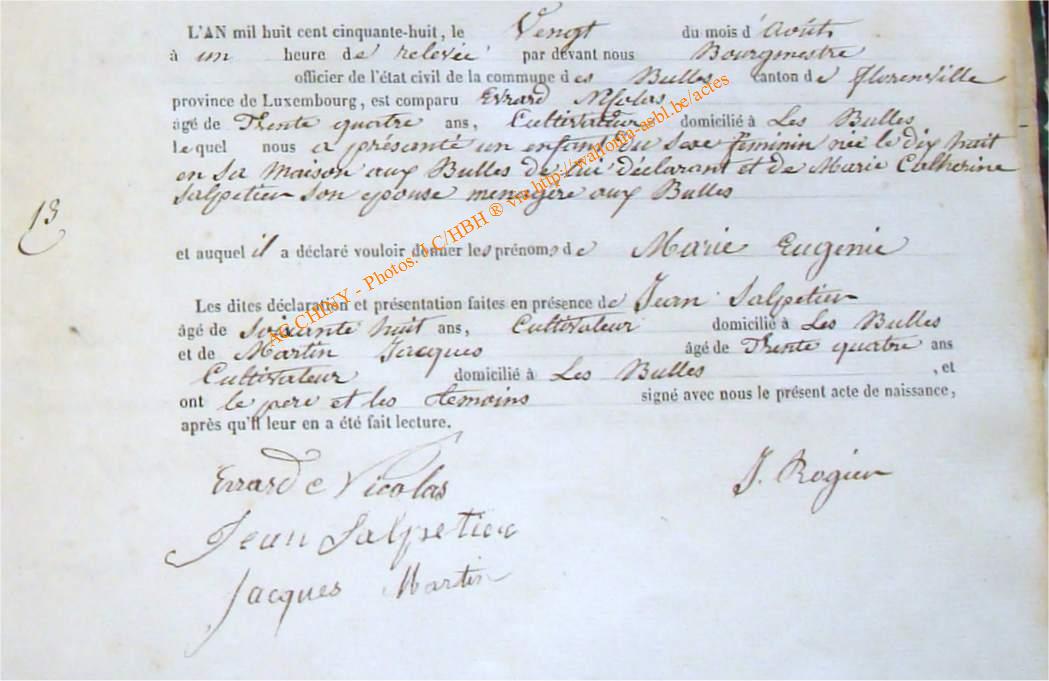 L'AN mil huit cent cinquante-huit, le Vengt du mois d'Août
à un heure de relevée par devant nous Bourgmestre
officier de l'état civil de la commune des Bulles canton de florenville
province de Luxembourg, est comparu Evrard Nicolas
âgé de Trente quatre ans, Cultivateur domicilié à Les Bulles
le quel nous a présanté un enfant du sexe féminin née le dix huit
en sa maison aux Bulles de lui déclarant et de Marie Catherine
Salpetier son epouse menagère aux Bulles
13
et auquel il a déclaré vouloir donner les prénoms de Marie Eugenie
Les dites déclaration et présentation faites en présence de Jean Salpetier
âgé de soixante huit ans, Cultivateur domicilié à Les Bulles
et de Martin Jacques âgé de Trente quatre ans
Cultivateur domicilié à Les Bulles , et
ont le pere et les temoins signé avec nous le présent acte de naissance,
après qu'il leur en a été fait lecture.
Nicolas J. Rogier
Jean Salpetier
Jacques Martin
AC CHINY - Photos: LC/HBH ® via http://wallonia-asbl.be/actes